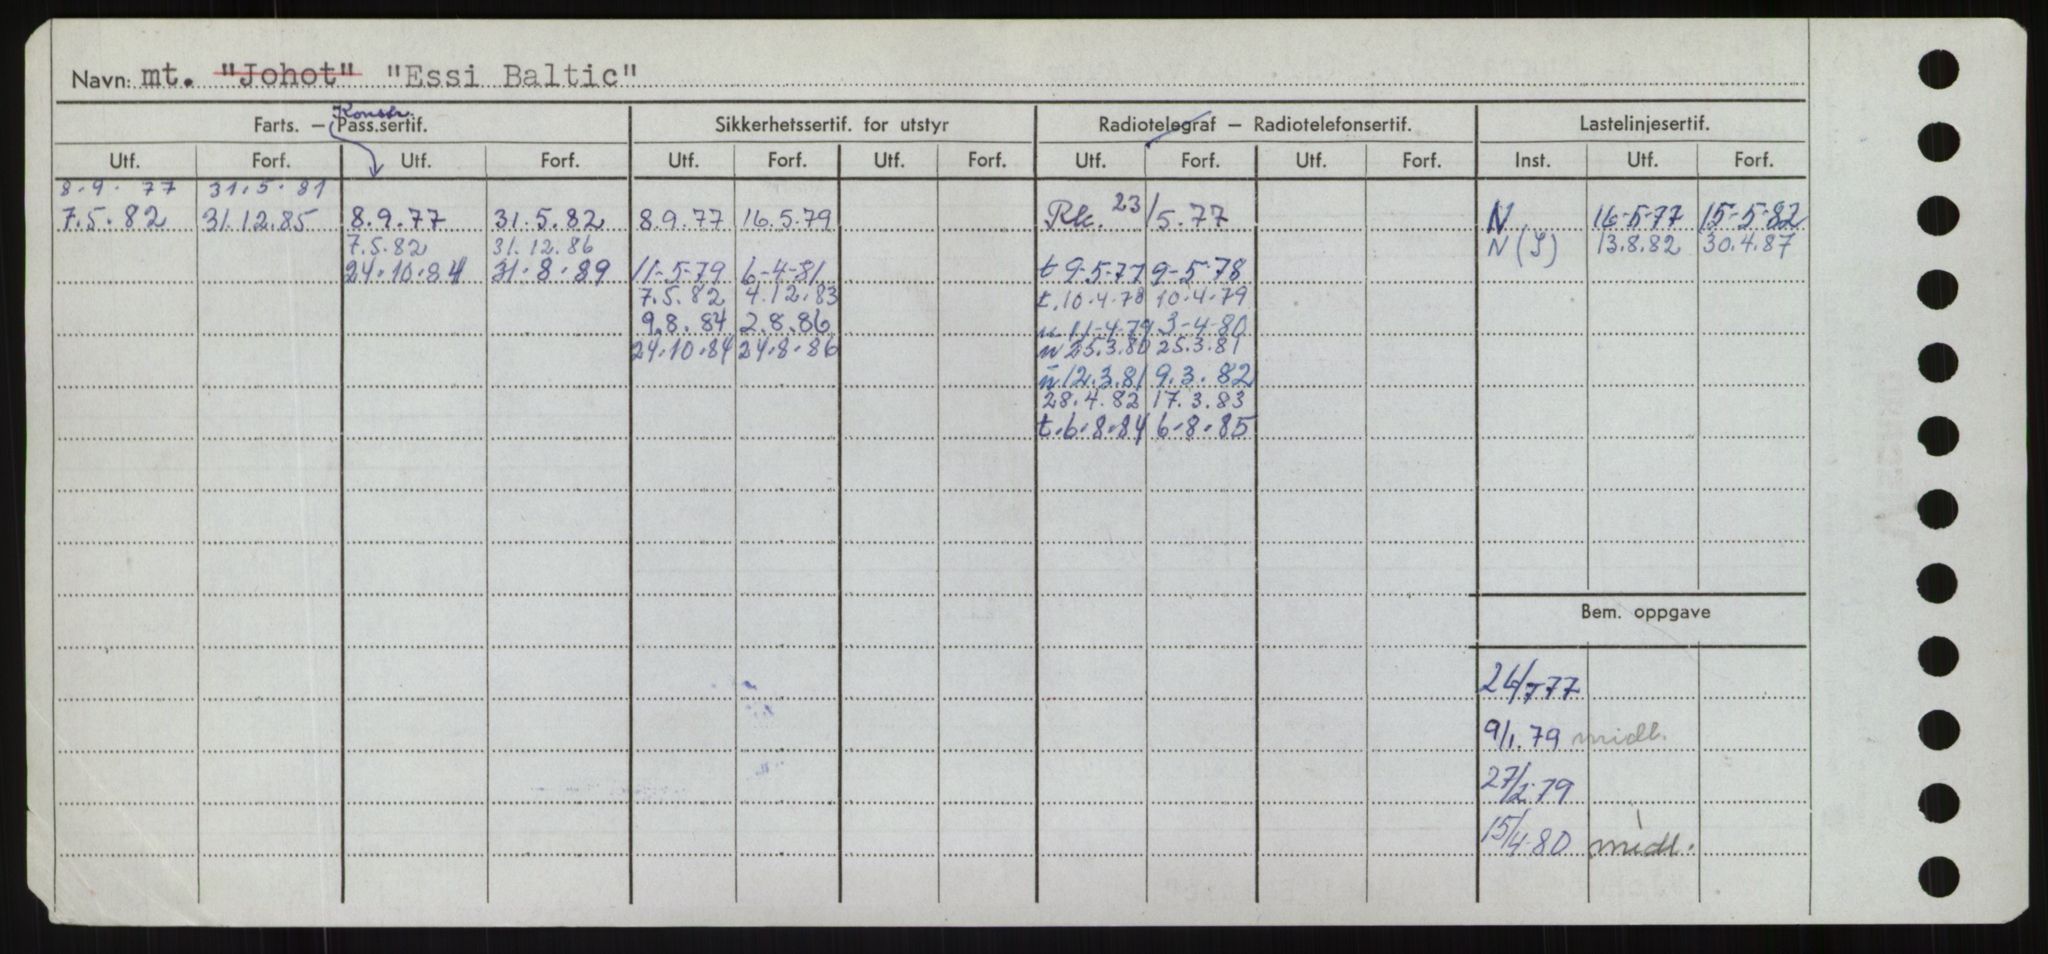 Navn: mt. "Johot" "Essi Baltic"
Konstr.
Farts. — Pass.sertif. Sikkerhetssertif. for utstyr Radiotelegraf — Radiotelefonsertif. Lastelinjesertif.
Utf. Forf. Utf. Forf. Utf. Forf. Utf. Forf. Utf. Forf. Utf. Forf. Inst. Utf. Forf.
8.9. 77 31.5.81
7.5.82 31.12.85 8.9.77 31.5.82 8.9.77 16.5.79 23/5.77 N 16-5-77 15-5-82
7.5.82 31.12.86 N (S) 13.8.82 30.4.87
24.10.84 31.8.89 11-5-79 6-4-81 t 9-5-77 9-5-78
7.5.82 4.12.83 t.10.4.78 10.4.79
9.8.84 2.8.86 11-4-79 3-4-80
24.10.84 24.8.86 n 25.3.80 25.3.81
n 12.3.81 9.3.82
28.4.82 17.3.83
t.6.8.84 6.8.85
Bem. oppgave
26/7 77
9/1.79 midl.
27/2.79
15/4.80 midl.